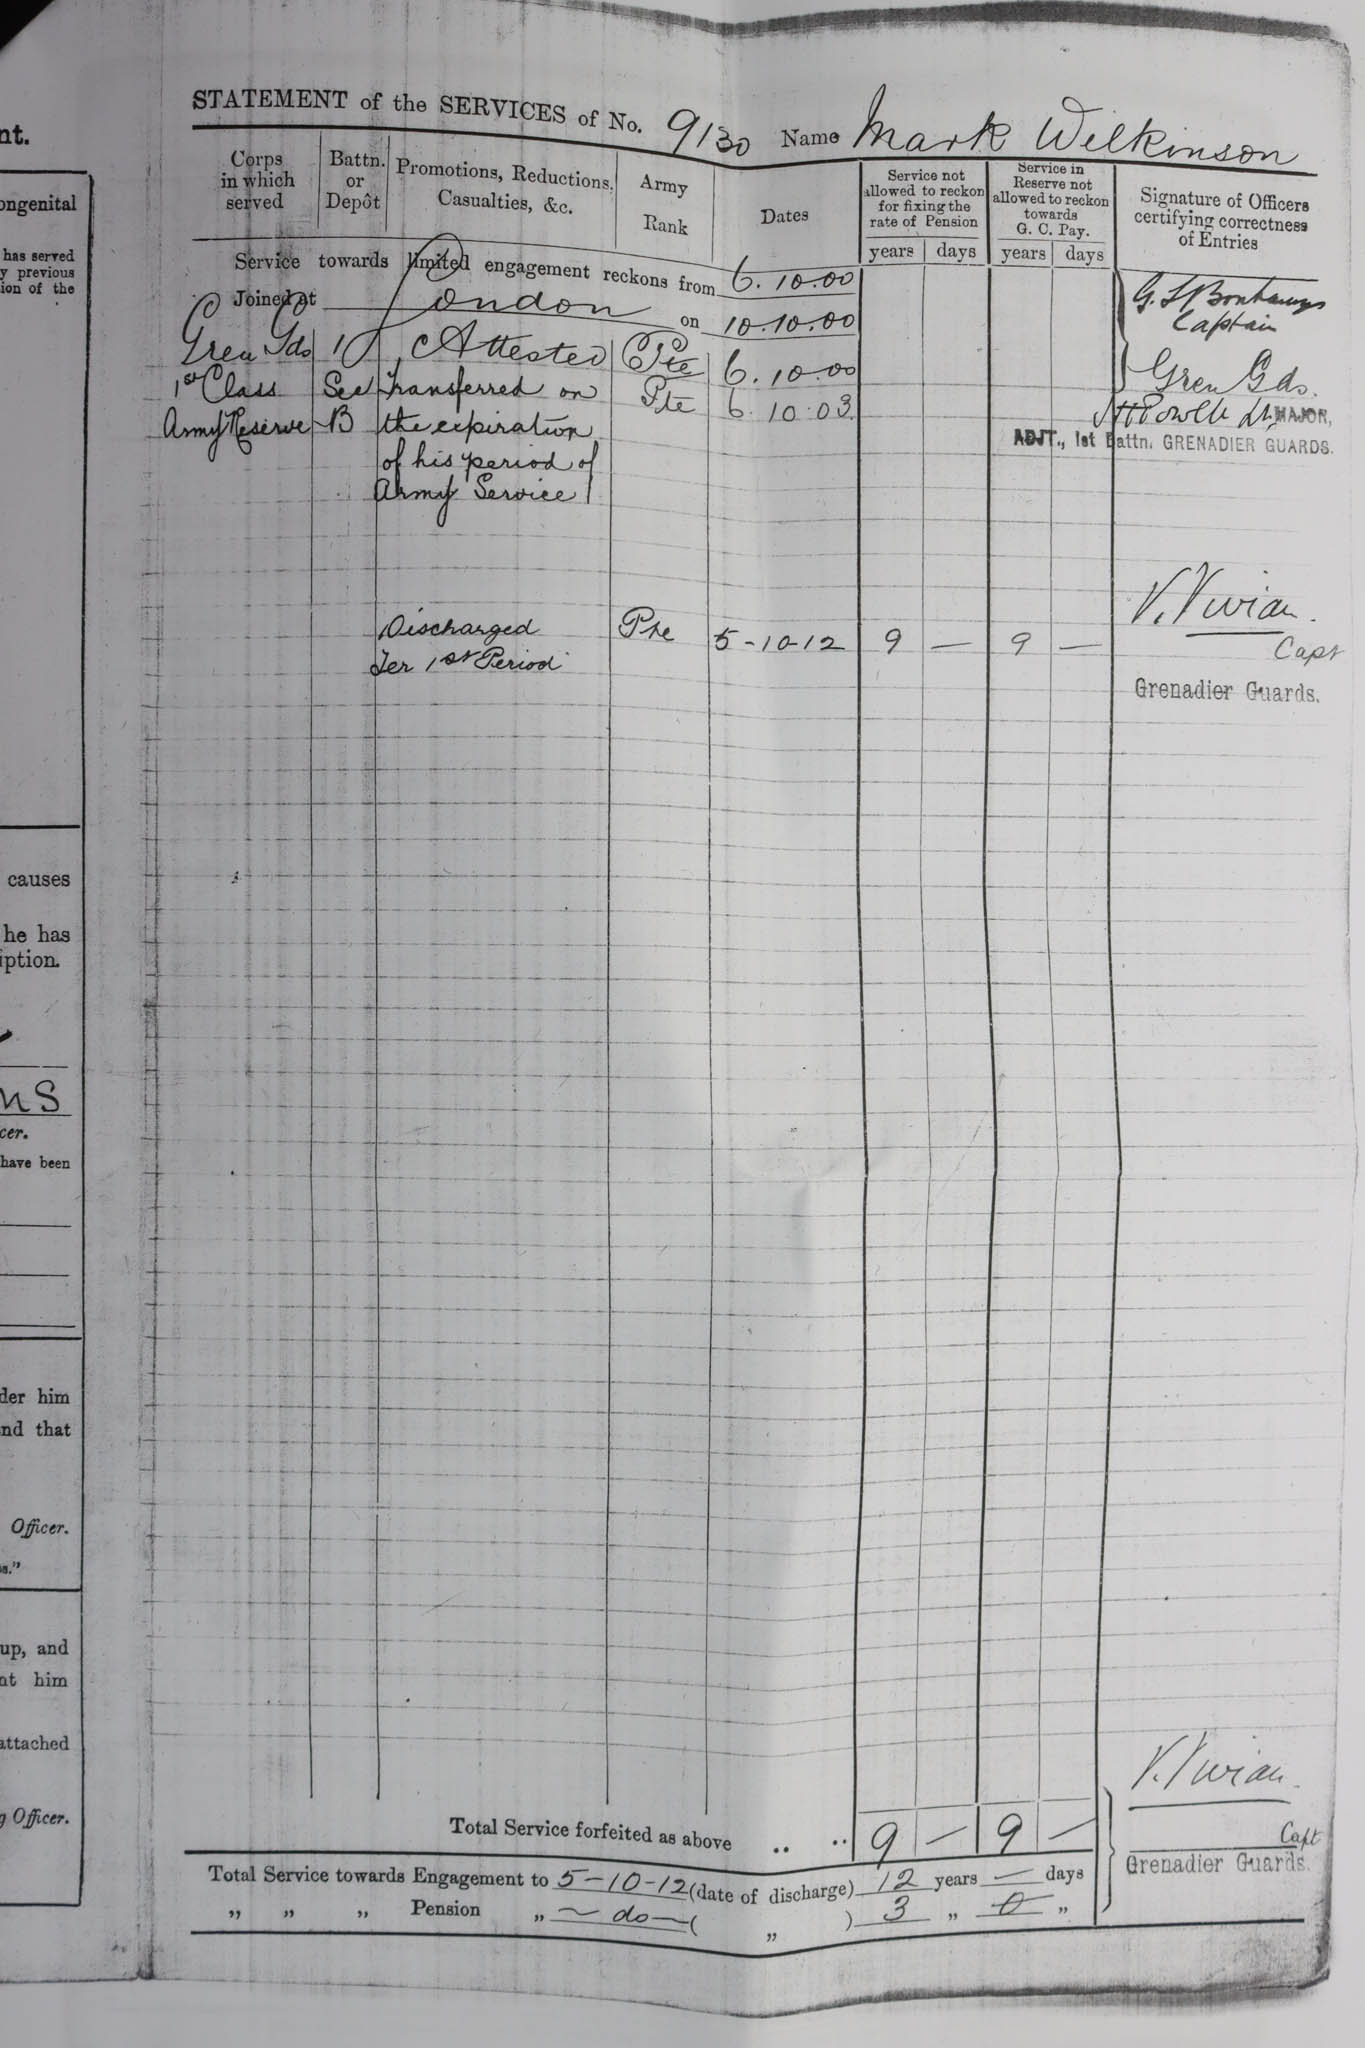 STATEMENT of the SERVICES of No. 9130 Name Mark Wilkinson
Corps in which served
Battn. or Depôt
Promotions, Reductions, Casualties, &c.
Army Rank
Dates
Service not allowed to reckon for fixing the rate of Pension
years days
Service in Reserve not allowed to reckon towards G. C. Pay.
years days
Signature of Officers certifying correctness of Entries
Service towards limited engagement reckons from 6.10.00
Joined at London on 10.10.00
Captain
Gren Gds 1 Attested Pte 6.10.00 Gren Gds.
1st Class Sec Transferred on Pte 6.10.03
MAJOR,
Army Reserve B the expiration
ADJT., 1st Battn. GRENADIER GUARDS.
of his period of
Army Service
V. Vivian
Discharged Pte 5-10-12 9 — 9 —
Capt
Ter 1st Period
Grenadier Guards.
V. Vivian
Total Service forfeited as above .. .. 9 — 9 —
Capt
Grenadier Guards.
Total Service towards Engagement to 5-10-12 (date of discharge) 12 years — days
„ „ „ Pension „ — do — ( „ ) 3 „ 0 „
nt.
ongenital
has served
y previous
ion of the
causes
he has
iption.
ns
cer.
have been
der him
nd that
Officer.
s."
up, and
nt him
attached
g Officer.